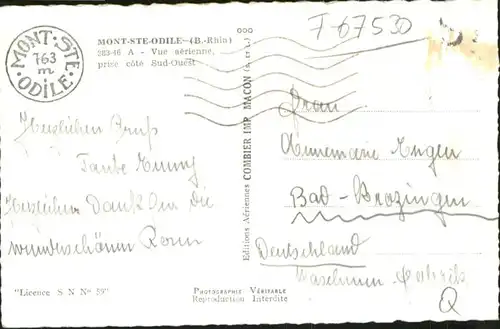 MONT-STE-ODILE
763
m
MONT-STE-ODILE—(B.-Rhin)
263-46 A - Vue aérienne,
prise côté Sud-Ouest
T-67530
Herzlichen Gruß
Tante
Herzlichen Dank für die
wunderschönen
Editions Aériennes COMBIER IMP. MACON (S. et L.)
Frau
Annemarie
Bad-Krozingen
Deutschland
"Licence S N N° 55"
PHOTOGRAPHIE VÉRITABLE
Reproduction Interdite
Q